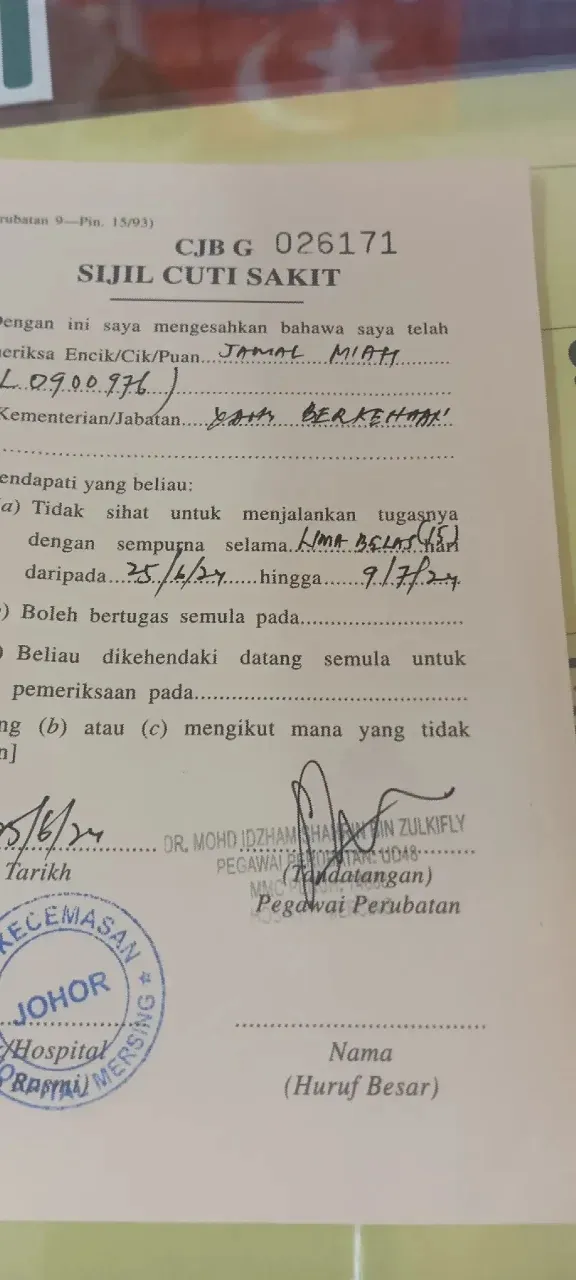 rubatan 9—Pin. 15/93)
CJB G 026171
SIJIL CUTI SAKIT
Dengan ini saya mengesahkan bahawa saya telah
eriksa Encik/Cik/Puan...JAMAL MIAH
L 0900976)
Kementerian/Jabatan.....YANG BERKENAAN
endapati yang beliau:
(a) Tidak sihat untuk menjalankan tugasnya
dengan sempurna selama LIMA BELAS (15) hari
daripada...25/6/24......hingga.......9/7/24
) Boleh bertugas semula pada...........................
) Beliau dikehendaki datang semula untuk
pemeriksaan pada.............................................
ng (b) atau (c) mengikut mana yang tidak
n]
25/6/24
DR. MOHD IDZHAM BIN ZULKIFLY
PEGAWAI PERUBATAN UD48
Tarikh
(Tandatangan)
Pegawai Perubatan
KECEMASAN
JOHOR
HOSPITAL MERSING
/Hospital
Rasmi)
Nama
(Huruf Besar)